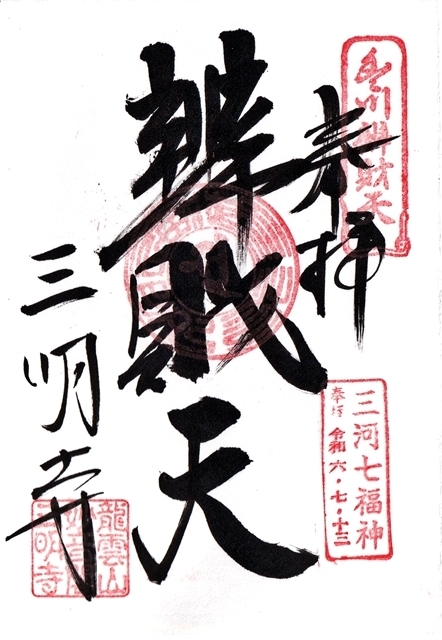 豊川辨財天
奉拝
三河七福神
奉拝 令和六・七・十三
辨財天
三明寺
龍雲山
三明寺